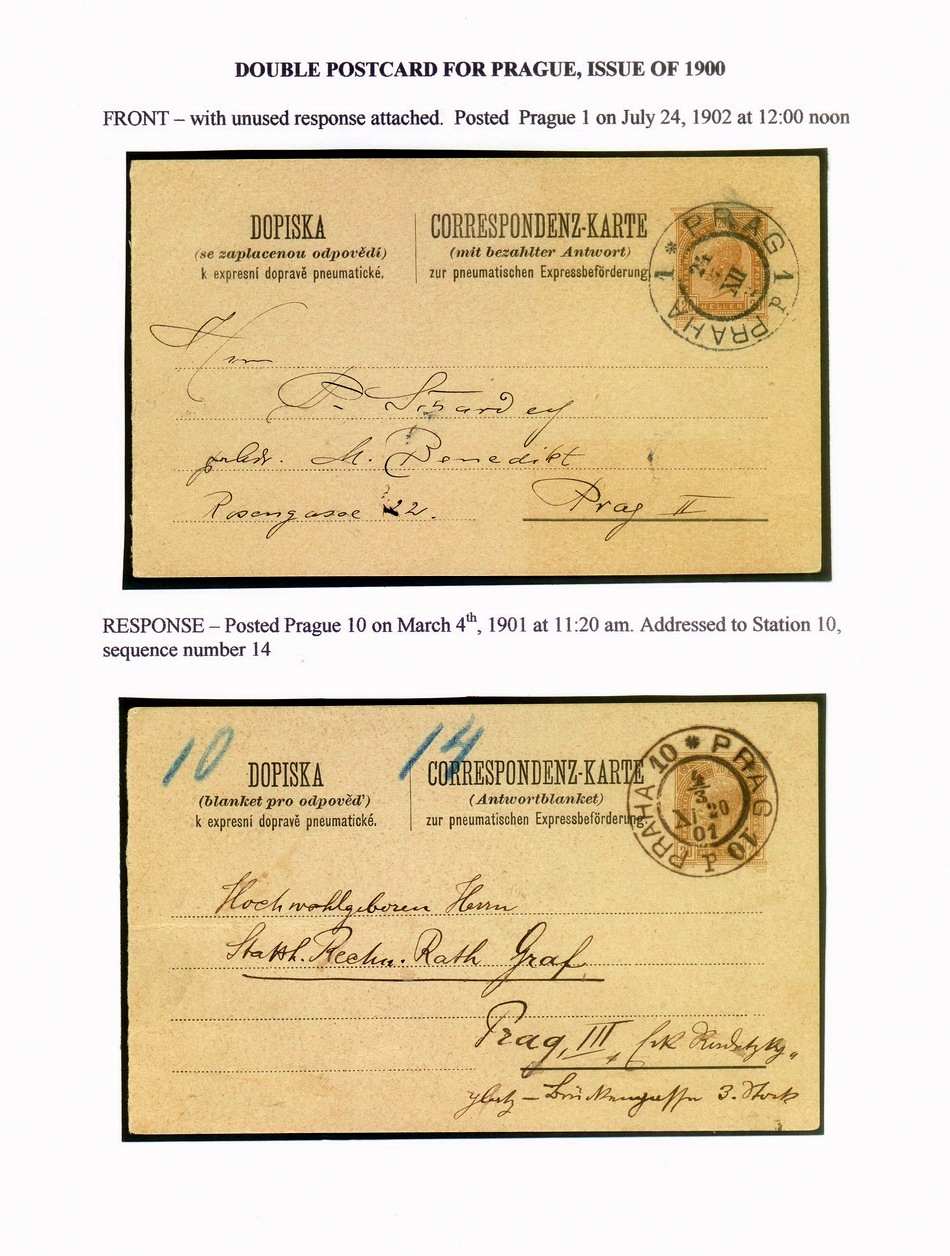 DOUBLE POSTCARD FOR PRAGUE, ISSUE OF 1900
FRONT – with unused response attached. Posted Prague 1 on July 24, 1902 at 12:00 noon
DOPISKA
(se zaplacenou odpovědí)
k expresní dopravě pneumatické.
CORRESPONDENZ-KARTE
(mit bezahlter Antwort)
zur pneumatischen Expressbeförderung.
PRAG 1
PRAHA 1
24
XII
HELLER
Herrn
M. Benedikt
Rosengasse 22.
Prag II
RESPONSE – Posted Prague 10 on March 4th, 1901 at 11:20 am. Addressed to Station 10,
sequence number 14
10
14
DOPISKA
(blanket pro odpověď)
k expresní dopravě pneumatické.
CORRESPONDENZ-KARTE
(Antwortblanket)
zur pneumatischen Expressbeförderung.
PRAG 10
PRAHA 10
P
4/3
XI 20
01
Hochwohlgeboren Herrn
Statth. Rechn. Rath Graf
Prag, III
Brückengasse 3. Stock